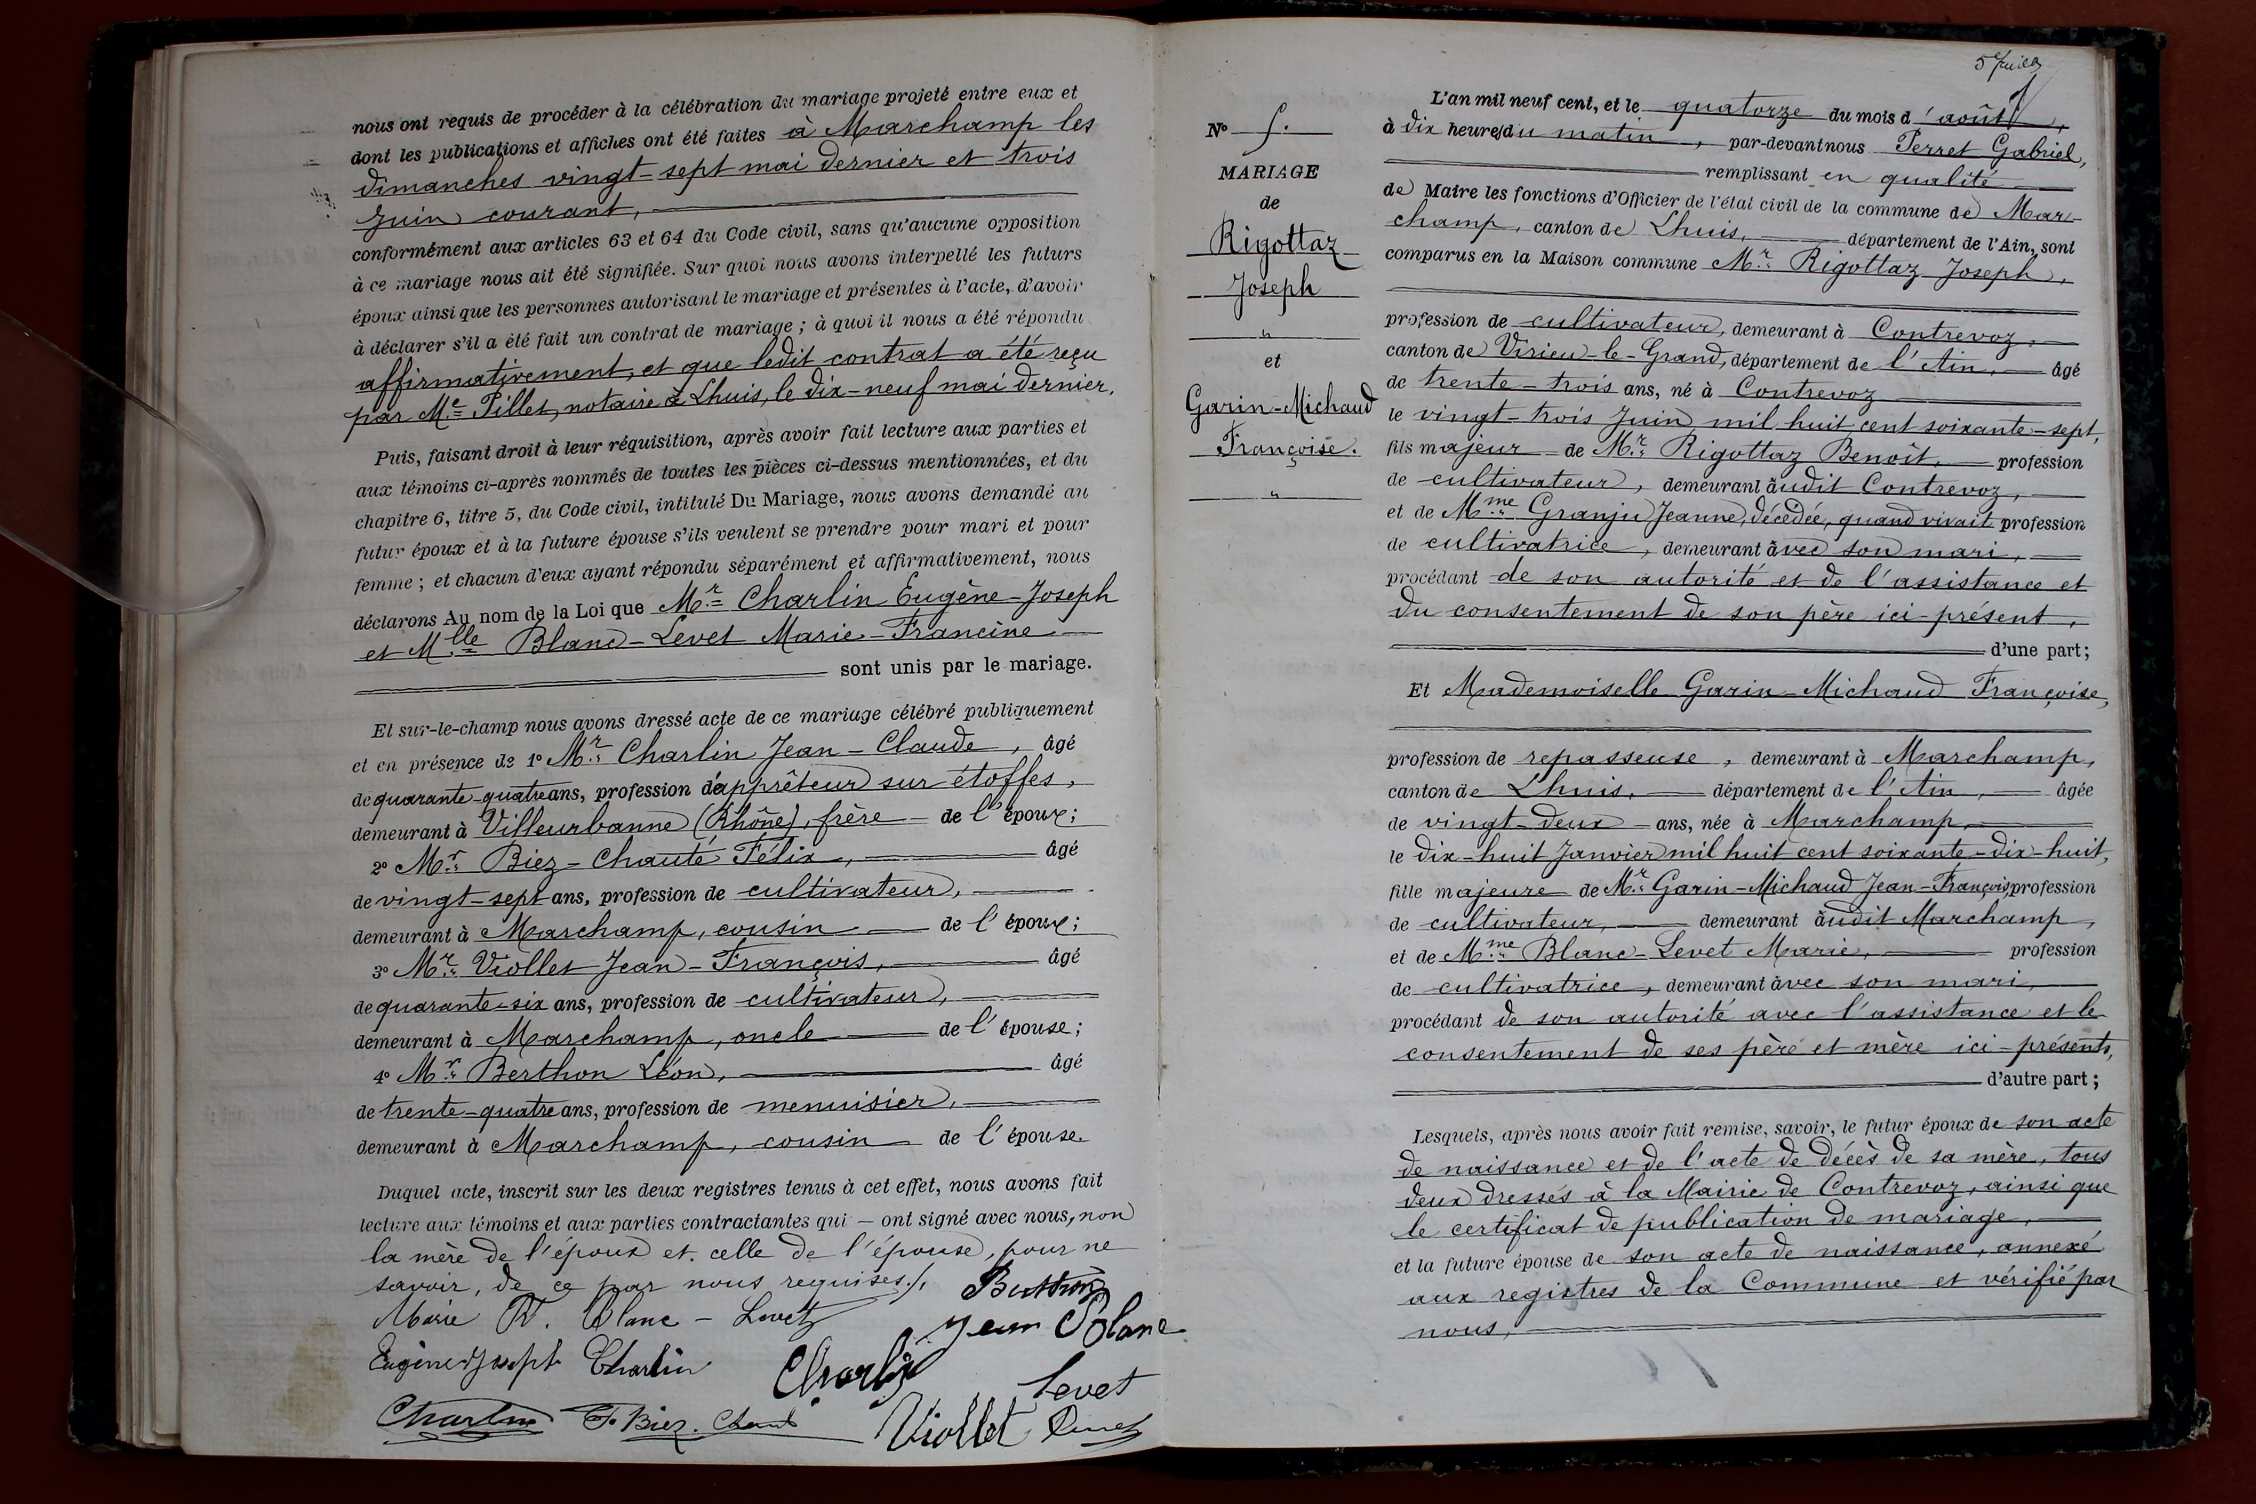 nous ont requis de procéder à la célébration du mariage projeté entre eux et
dont les publications et affiches ont été faites à Marchamp les
dimanches vingt-sept mai dernier et trois
Juin courant,
conformément aux articles 63 et 64 du Code civil, sans qu'aucune opposition
à ce mariage nous ait été signifiée. Sur quoi nous avons interpellé les futurs
époux ainsi que les personnes autorisant le mariage et présentes à l'acte, d'avoir
à déclarer s'il a été fait un contrat de mariage ; à quoi il nous a été répondu
affirmativement, et que ledit contrat a été reçu
par Me Pillet, notaire à Lhuis, le dix-neuf mai dernier.
Puis, faisant droit à leur réquisition, après avoir fait lecture aux parties et
aux témoins ci-après nommés de toutes les pièces ci-dessus mentionnées, et du
chapitre 6, titre 5, du Code civil, intitulé Du Mariage, nous avons demandé au
futur époux et à la future épouse s'ils veulent se prendre pour mari et pour
femme ; et chacun d'eux ayant répondu séparément et affirmativement, nous
déclarons Au nom de la Loi que Mr Charlin Eugène-Joseph
et Mlle Blanc-Levet Marie-Francine
sont unis par le mariage.
Et sur-le-champ nous avons dressé acte de ce mariage célébré publiquement
et en présence de 1° Mr Charlin Jean-Claude, âgé
de quarante-quatre ans, profession d'apprêteur sur étoffes,
demeurant à Villeurbanne (Rhône), frère de l'époux ;
2° Mr Biez-Chauté Félix, âgé
de vingt-sept ans, profession de cultivateur,
demeurant à Marchamp, cousin de l'époux ;
3° Mr Viollet Jean-François, âgé
de quarante-six ans, profession de cultivateur,
demeurant à Marchamp, oncle de l'épouse ;
4° Mr Berthon Léon, âgé
de trente-quatre ans, profession de menuisier,
demeurant à Marchamp, cousin de l'épouse.
Duquel acte, inscrit sur les deux registres tenus à cet effet, nous avons fait
lecture aux témoins et aux parties contractantes qui – ont signé avec nous, non
la mère de l'époux et celle de l'épouse, pour ne
savoir, de ce par nous requises./.
Berthon
Marie F. Blanc-Levet
Jean Blanc
Eugène Joseph Charlin
Charlin
Levet
Charlin
F. Biez. Chauté
Viollet
N° 5.
MARIAGE
de
Rigottaz
Joseph
"
et
Garin-Michaud
Françoise.
"
L'an mil neuf cent, et le quatorze du mois d'août,
à dix heures du matin, par-devant nous Perret Gabriel,
remplissant en qualité
de Maire les fonctions d'Officier de l'état civil de la commune de Mar-
champ, canton de Lhuis, département de l'Ain, sont
comparus en la Maison commune Mr Rigottaz Joseph,
profession de cultivateur, demeurant à Contrevoz,
canton de Virieu-le-Grand, département de l'Ain, âgé
de trente-trois ans, né à Contrevoz
le vingt-trois Juin mil huit cent soixante-sept,
fils majeur de Mr Rigottaz Benoît, profession
de cultivateur, demeurant audit Contrevoz,
et de Mme Granju Jeanne, décédée, quand vivait profession
de cultivatrice, demeurant avec son mari,
procédant de son autorité et de l'assistance et
du consentement de son père ici-présent,
d'une part ;
Et Mademoiselle Garin-Michaud Françoise,
profession de repasseuse, demeurant à Marchamp,
canton de Lhuis, département de l'Ain, âgée
de vingt-deux ans, née à Marchamp,
le dix-huit Janvier mil huit cent soixante-dix-huit,
fille majeure de Mr Garin-Michaud Jean-François, profession
de cultivateur, demeurant audit Marchamp,
et de Mme Blanc-Levet Marie, profession
de cultivatrice, demeurant avec son mari,
procédant de son autorité avec l'assistance et le
consentement de ses père et mère ici-présents,
d'autre part ;
Lesquels, après nous avoir fait remise, savoir, le futur époux de son acte
de naissance et de l'acte de décès de sa mère, tous
deux dressés à la Mairie de Contrevoz, ainsi que
le certificat de publication de mariage,
et la future épouse de son acte de naissance, annexé
aux registres de la Commune et vérifié par
nous,